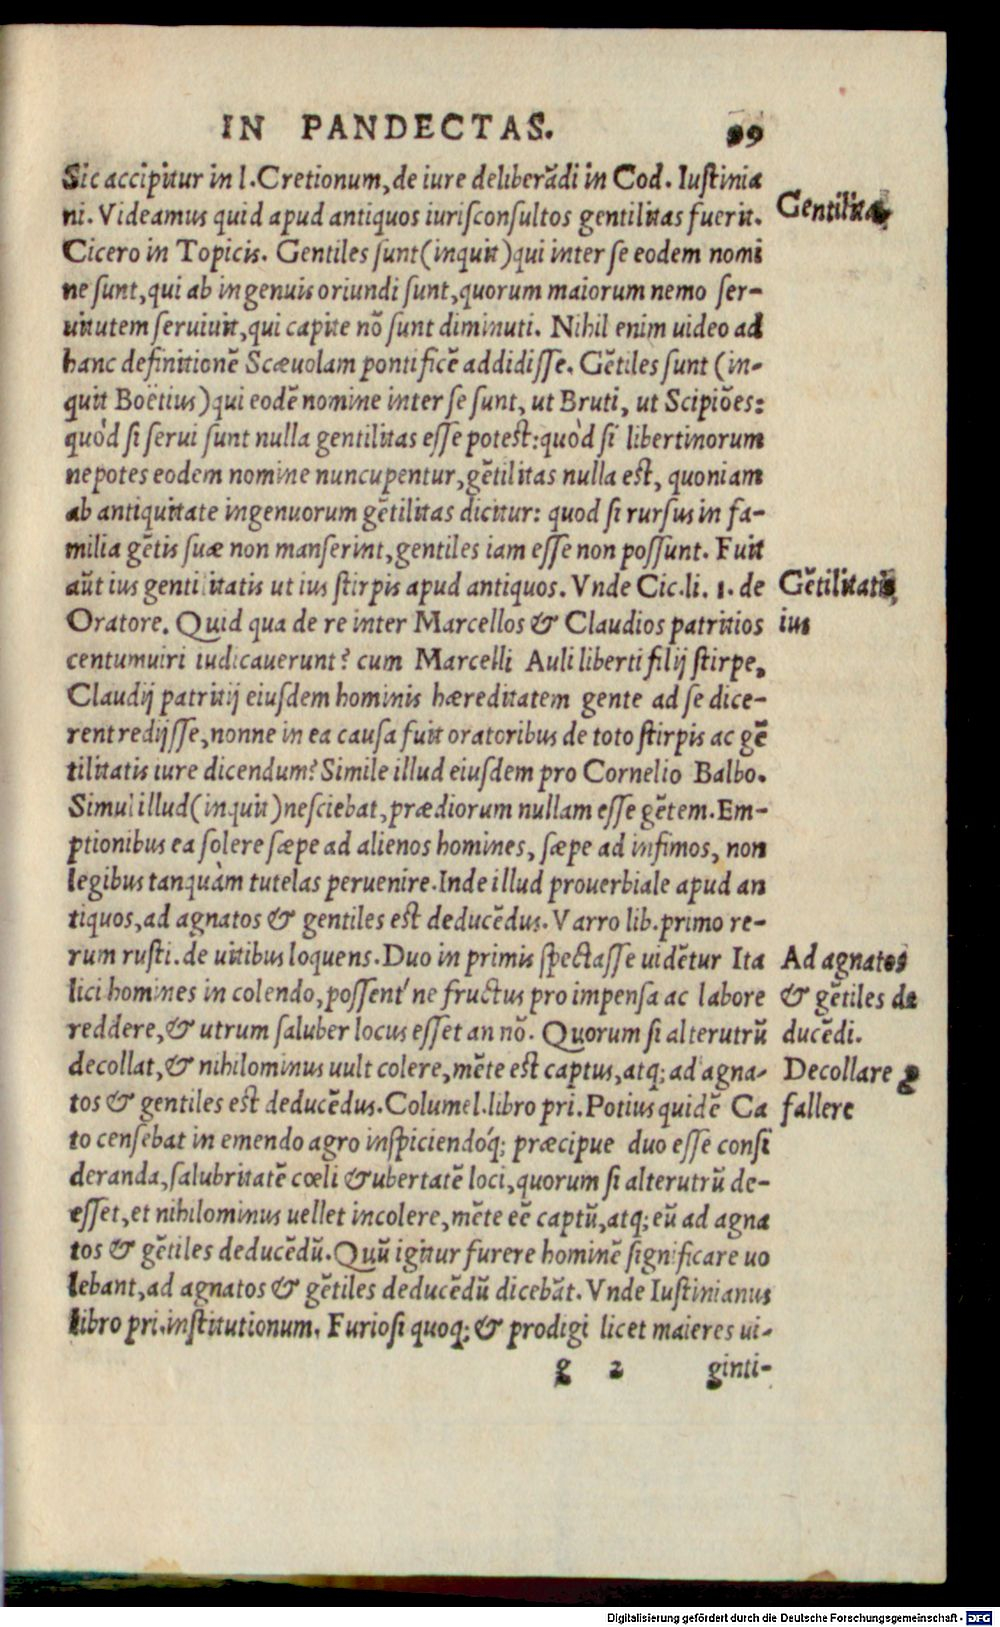 IN PANDECTAS. 99
Sic accipitur in l. Cretionum, de iure deliberādi in Cod. Iustinia
ni. Videamus quid apud antiquos iurisconsultos gentilitas fuerit.
Gentilitas
Cicero in Topicis. Gentiles sunt (inquit) qui inter se eodem nomi
ne sunt, qui ab ingenuis oriundi sunt, quorum maiorum nemo ser-
uitutem seruiuit, qui capite nō sunt diminuti. Nihil enim uideo ad
hanc definitionē Scæuolam pontificē addidisse. Gētiles sunt (in-
quit Boëtius) qui eodē nomine inter se sunt, ut Bruti, ut Scipiōes:
quòd si serui sunt nulla gentilitas esse potest: quòd si libertinorum
nepotes eodem nomine nuncupentur, gētilitas nulla est, quoniam
ab antiquitate ingenuorum gētilitas dicitur: quod si rursus in fa-
milia gētis suæ non manserint, gentiles iam esse non possunt. Fuit
aūt ius gentilitatis ut ius stirpis apud antiquos. Vnde Cic. li. 1. de
Gētilitatis
Oratore. Quid qua de re inter Marcellos & Claudios patritios
ius
centumuiri iudicauerunt? cum Marcelli Auli liberti filij stirpe,
Claudij patritij eiusdem hominis hæreditatem gente ad se dice-
rent redijsse, nonne in ea causa fuit oratoribus de toto stirpis ac gē
tilitatis iure dicendum? Simile illud eiusdem pro Cornelio Balbo.
Simul illud (inquit) nesciebat, prædiorum nullam esse gētem. Em-
ptionibus ea solere sæpe ad alienos homines, sæpe ad infimos, non
legibus tanquàm tutelas peruenire. Inde illud prouerbiale apud an
tiquos, ad agnatos & gentiles est deducēdus. Varro lib. primo re-
rum rusti. de uitibus loquens. Duo in primis spectasse uidētur Ita
Ad agnatos
lici homines in colendo, possent'ne fructus pro impensa ac labore
& gētiles de
reddere, & utrum saluber locus esset an nō. Quorum si alterutrū
ducēdi.
decollat, & nihilominus uult colere, mēte est captus, atq; ad agna-
Decollare ꝓ
tos & gentiles est deducēdus. Columel. libro pri. Potius quidē Ca
fallere
to censebat in emendo agro inspiciendóq; præcipue duo esse consi
deranda, salubritatē cœli & ubertatē loci, quorum si alterutrū de-
esset, et nihilominus uellet incolere, mēte eē captū, atq; eū ad agna
tos & gētiles deducēdū. Quū igitur furere hominē significare uo
lebant, ad agnatos & gētiles deducēdū dicebāt. Vnde Iustinianus
libro pri. institutionum. Furiosi quoq; & prodigi licet maieres ui-
g 2 ginti-
Digitalisierung gefördert durch die Deutsche Forschungsgemeinschaft - DFG